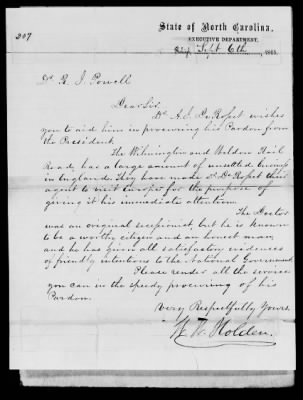 State of North Carolina,
207
EXECUTIVE DEPARTMENT,
Sept 6th, 1865.
Dr R. J. Powell
Dear Sir.
Dr. A. J. DeRosset wishes
you to aid him in procuring his Pardon from
the President.
The Wilmington and Weldon Rail
Road, has a large amount of unsettled business
in England. They have made Dr DeRosset their
agent to visit Europe for the purpose of
giving it his immediate attention.
The Doctor
was an original secessionist, but he is known
to be a worthy citizen and an honest man
and he has given all satisfactory evidences
of friendly intentions to the National Government.
Please render all the service
you can in the speedy procuring of his
Pardon.
Very Respectfully Yours,
W. W. Holden.